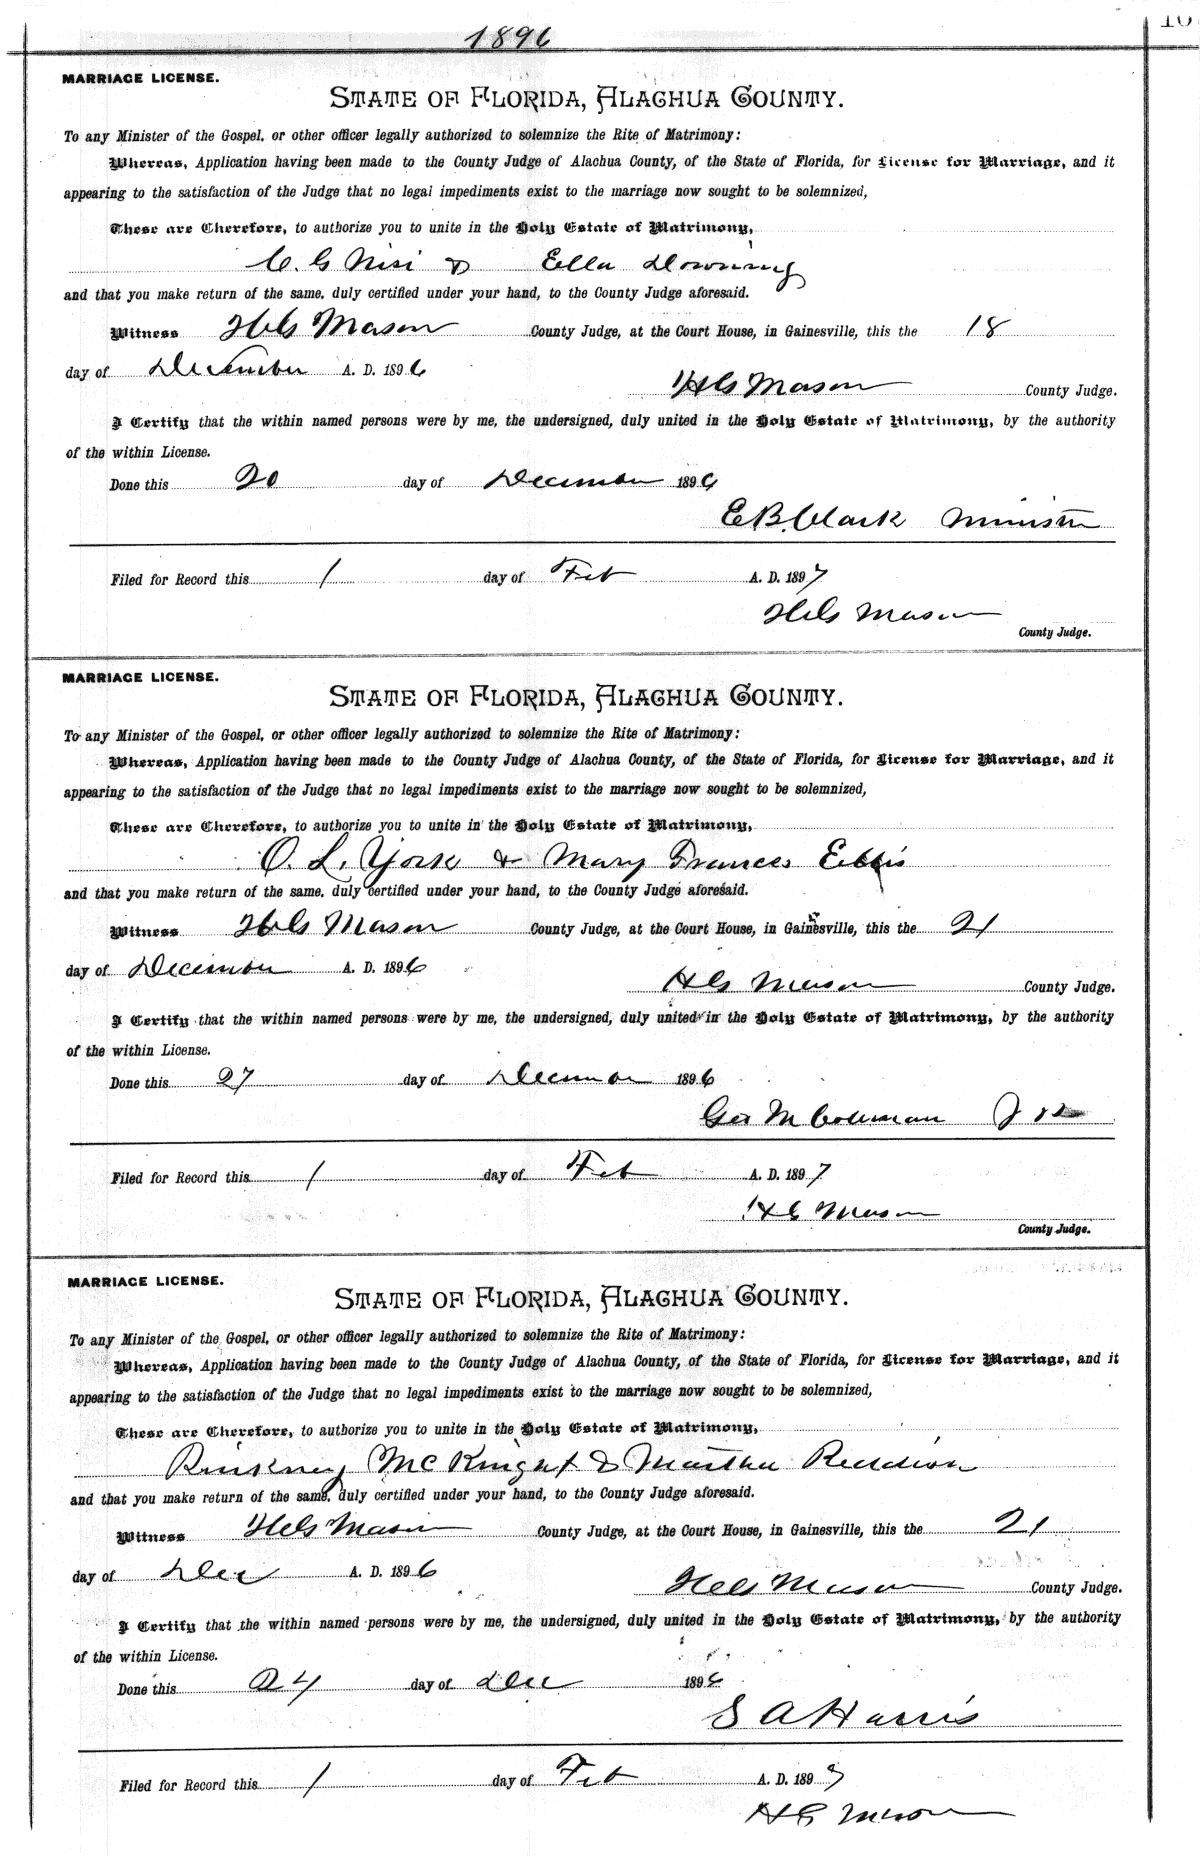 1896
MARRIAGE LICENSE.
STATE OF FLORIDA, ALACHUA COUNTY.
To any Minister of the Gospel, or other officer legally authorized to solemnize the Rite of Matrimony:
Whereas, Application having been made to the County Judge of Alachua County, of the State of Florida, for License for Marriage, and it
appearing to the satisfaction of the Judge that no legal impediments exist to the marriage now sought to be solemnized,
These are Therefore, to authorize you to unite in the Holy Estate of Matrimony,
C. G & Ella Downing
and that you make return of the same, duly certified under your hand, to the County Judge aforesaid.
Witness H G Mason County Judge, at the Court House, in Gainesville, this the 18
day of December A. D. 1896
H G Mason County Judge.
I Certify that the within named persons were by me, the undersigned, duly united in the Holy Estate of Matrimony, by the authority
of the within License.
Done this 20 day of December 1896
E B. Clark Minister
Filed for Record this 1 day of Feb A. D. 1897
H G Mason
County Judge.
MARRIAGE LICENSE.
STATE OF FLORIDA, ALACHUA COUNTY.
To any Minister of the Gospel, or other officer legally authorized to solemnize the Rite of Matrimony:
Whereas, Application having been made to the County Judge of Alachua County, of the State of Florida, for License for Marriage, and it
appearing to the satisfaction of the Judge that no legal impediments exist to the marriage now sought to be solemnized,
These are Therefore, to authorize you to unite in the Holy Estate of Matrimony,
O. L. York & Mary Frances Ellis
and that you make return of the same, duly certified under your hand, to the County Judge aforesaid.
Witness H G Mason County Judge, at the Court House, in Gainesville, this the 21
day of December A. D. 1896
H G Mason County Judge.
I Certify that the within named persons were by me, the undersigned, duly united in the Holy Estate of Matrimony, by the authority
of the within License.
Done this 27 day of December 1896
Geo M Coleman
Filed for Record this 1 day of Feb A. D. 1897
H G Mason
County Judge.
MARRIAGE LICENSE.
STATE OF FLORIDA, ALACHUA COUNTY.
To any Minister of the Gospel, or other officer legally authorized to solemnize the Rite of Matrimony:
Whereas, Application having been made to the County Judge of Alachua County, of the State of Florida, for License for Marriage, and it
appearing to the satisfaction of the Judge that no legal impediments exist to the marriage now sought to be solemnized,
These are Therefore, to authorize you to unite in the Holy Estate of Matrimony,
Pinkney McKnight & Martha
and that you make return of the same, duly certified under your hand, to the County Judge aforesaid.
Witness H G Mason County Judge, at the Court House, in Gainesville, this the 21
day of Dec A. D. 1896
H G Mason County Judge.
I Certify that the within named persons were by me, the undersigned, duly united in the Holy Estate of Matrimony, by the authority
of the within License.
Done this 24 day of Dec 1896
S A Harris
Filed for Record this 1 day of Feb A. D. 1897
H G Mason